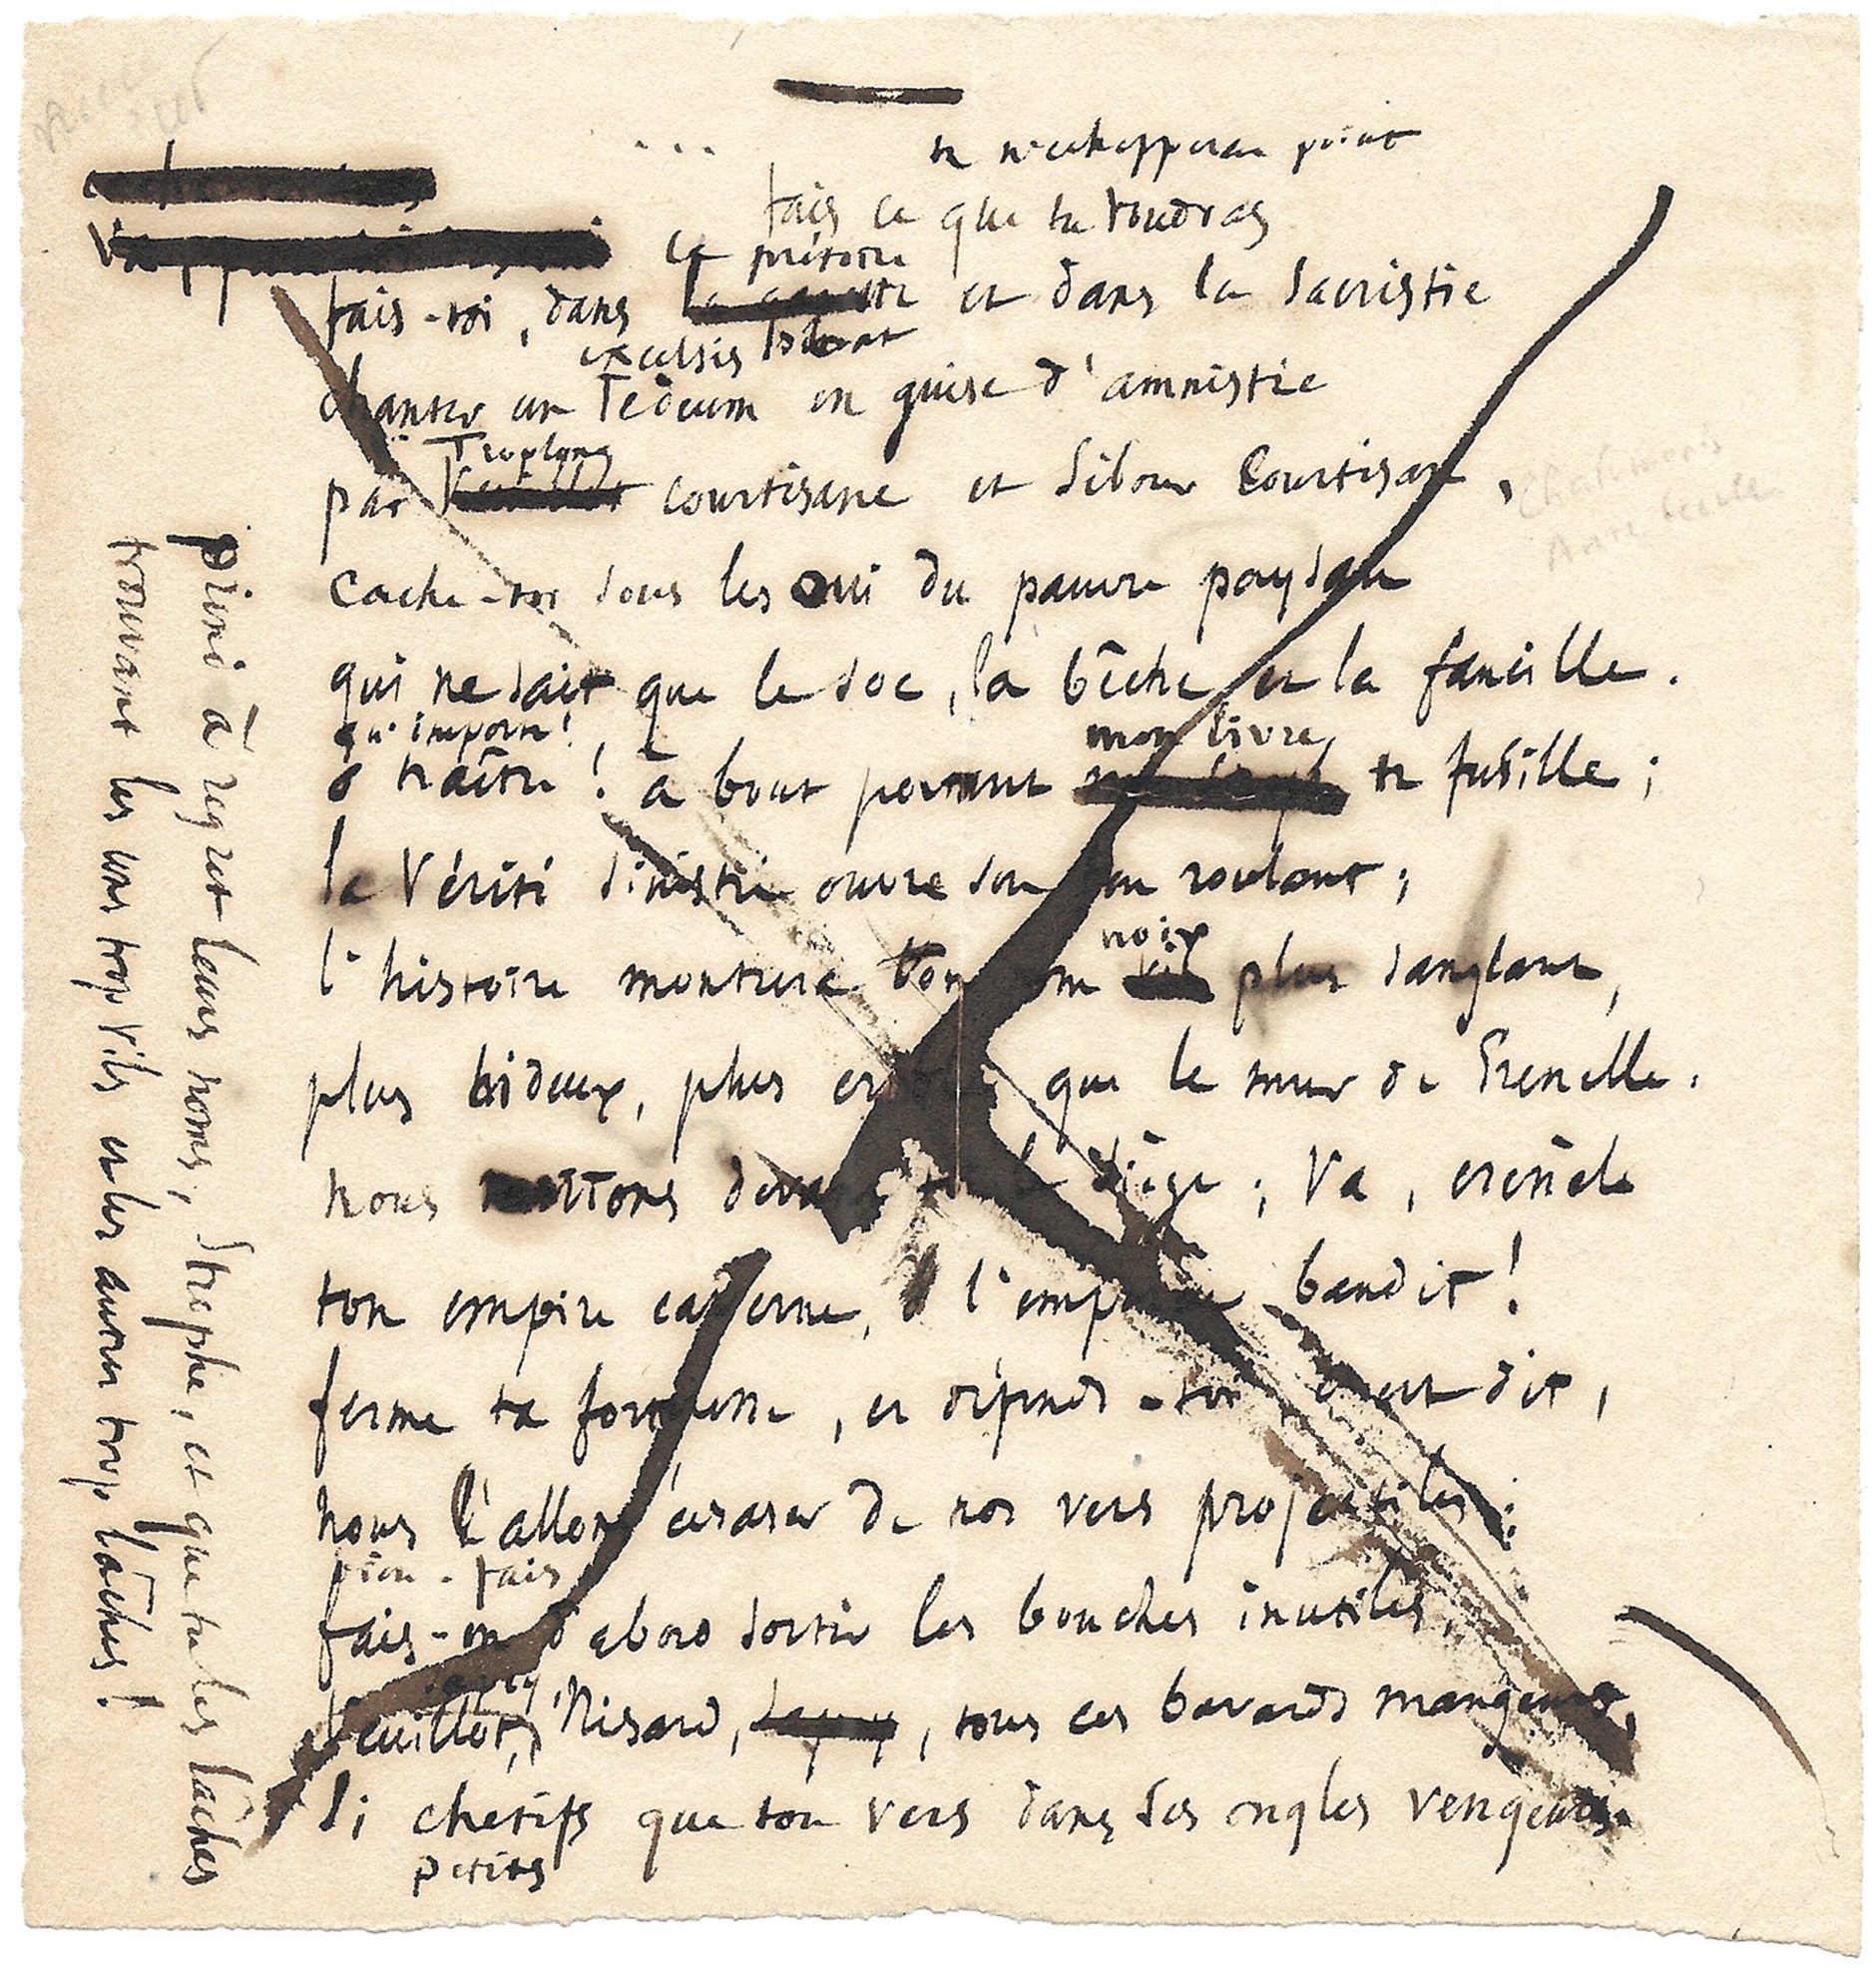 ...
tu n'échapperas point
fais ce que tu voudras
le prétoire
fais-toi, dans la et dans la sacristie
excelsis
chanter un Tedeum en guise d'amnistie
Troplong
par courtisane et Sibour courtisan,
cache-toi sous les oui du pauvre paysan
qui ne sait que le soc, la bêche et la faucille.
qu'importe!
ô traître! à bout portant te fusille;
mon livre
la vérité sinistre ouvre son feu roulant;
noir
l'histoire montrera ton nom plus sanglant,
plus hideux, plus que le mur de Grenelle.
nous mettons devant toi le siège; va, crénele
ton empire caverne, ô l'empereur bandit!
ferme ta forteresse, et défends-toi c'est dit,
nous l'allons écraser de nos vers projectiles;
fais
fais-en d'abord sortir les bouches inutiles,
Veuillot, Nisard, , tous ces bavards mangeurs,
si chétifs que ton vers dans ses ongles vengeurs
petits
prend à regret leurs noms, strophe, et que tu les lâches
trouvant les uns trop vils et les autres trop lâches!